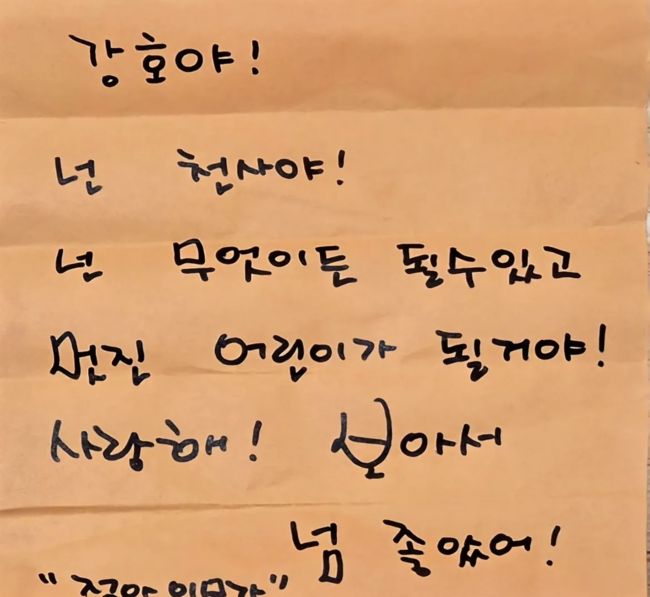 강호야!
넌 천사야!
넌 무엇이든 될수있고
멋진 어린이가 될거야!
사랑해! 보아서
넘 좋았어!
"정아 이모가"